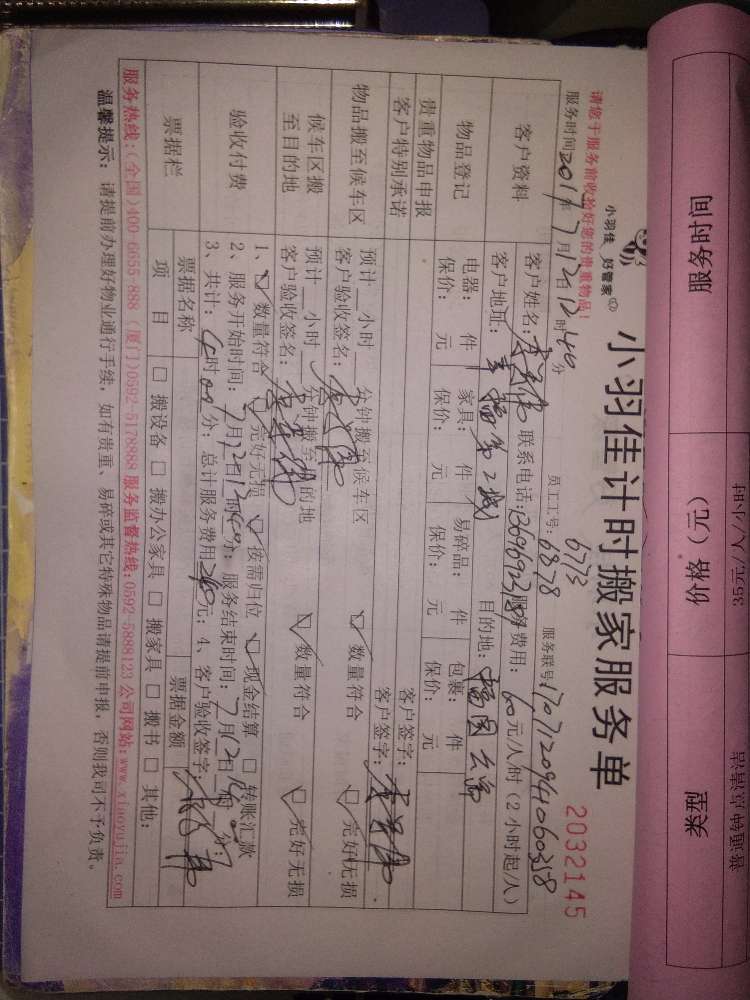 小羽佳 好管家
小羽佳计时搬家服务单
2032145
请您于服务前收验好您的贵重物品！
员工工号：
6773
6878
服务时间2017年7月12日12时40分
服务联号
客户资料
客户姓名：
联系电话：
服务费用：60元/人/时（2小时起/人）
客户地址：
目的地：
物品登记
电器： 件 家具： 件 易碎品： 件 包裹： 件
保价： 元 保价： 元 保价： 元 保价： 元
贵重物品申报
客户特别承诺
客户签字：
物品搬至候车区
预计 小时 分钟搬至候车区
客户验收签名：
数量符合
完好无损
候车区搬
至目的地
预计 小时 分钟搬至目的地
客户验收签名：
数量符合
完好无损
验收付费
1、 数量符合 完好无损 按需归位 现金结算 转账汇款
2、服务开始时间：7月12日12时40分；服务结束时间：7月12日 时 分；
3、共计： 时 分；总计服务费用240元；4、客户验收签字：
票据栏
票据名称
票据金额
项 目
□ 搬设备 □ 搬办公家具 □ 搬家具 □ 搬书 □ 其他：
服务热线：（全国）400-6655-888（厦门）0592-5178888 服务监督热线：0592-5888123 公司网站：www.xiaoyujia.com
温馨提示：请提前办理好物业通行手续，如有贵重、易碎或其它特殊物品请提前申报，否则我司不予负责。
类型
价格（元）
服务时间
普通钟点清洁
35元/人/小时